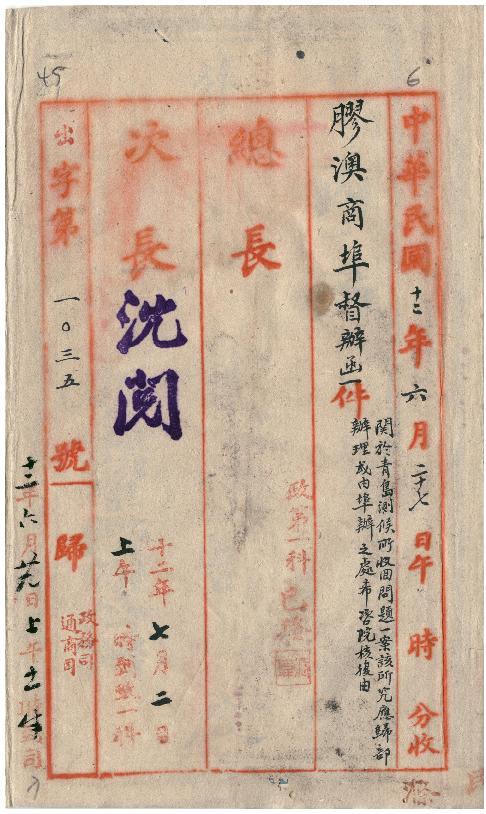 6
45
中華民國十二年六月二十七日午 時 分收
膠澳商埠督辦函一件
關於青島測候所收回問題一案該所究應歸部
辦理或由埠辦之處希咨院核復由
總長
政第一科
次長
沈閱
十二年七月二日
上午 時到第一科
出字第一〇三五號
歸
政務司
通商司